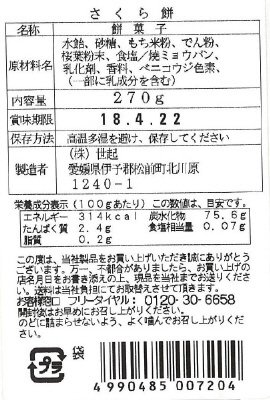 さくら餅
名称 餅菓子
原材料名 水飴、砂糖、もち米粉、でん粉、
桜葉粉末、食塩/焼ミョウバン、
乳化剤、香料、ベニコウジ色素、
(一部に乳成分を含む)
内容量 270g
賞味期限 18.4.22
保存方法 高温多湿を避け、保存してください
製造者 (株)世起
愛媛県伊予郡松前町北川原
1240-1
栄養成分表示(100gあたり)この数値は、目安です。
エネルギー 314kcal 炭水化物 75.6g
たんぱく質 2.4g 食塩相当量 0.07g
脂質 0.2g
この度は、当社製品をお買い上げいただき誠にありがとう
ございます。万一、不都合がありましたら、お買い上げの
店名月日をお書き添えの上、現品を当社までお送りくださ
い。送料は当社負担にてお取替えさせて頂きます。
お客様窓口 フリーダイヤル:0120-30-6658
開封後はお早めにお召し上がりください。
のどに詰まらせないよう、よく噛んでお召し上がりください。
プラ
袋
4990485007204